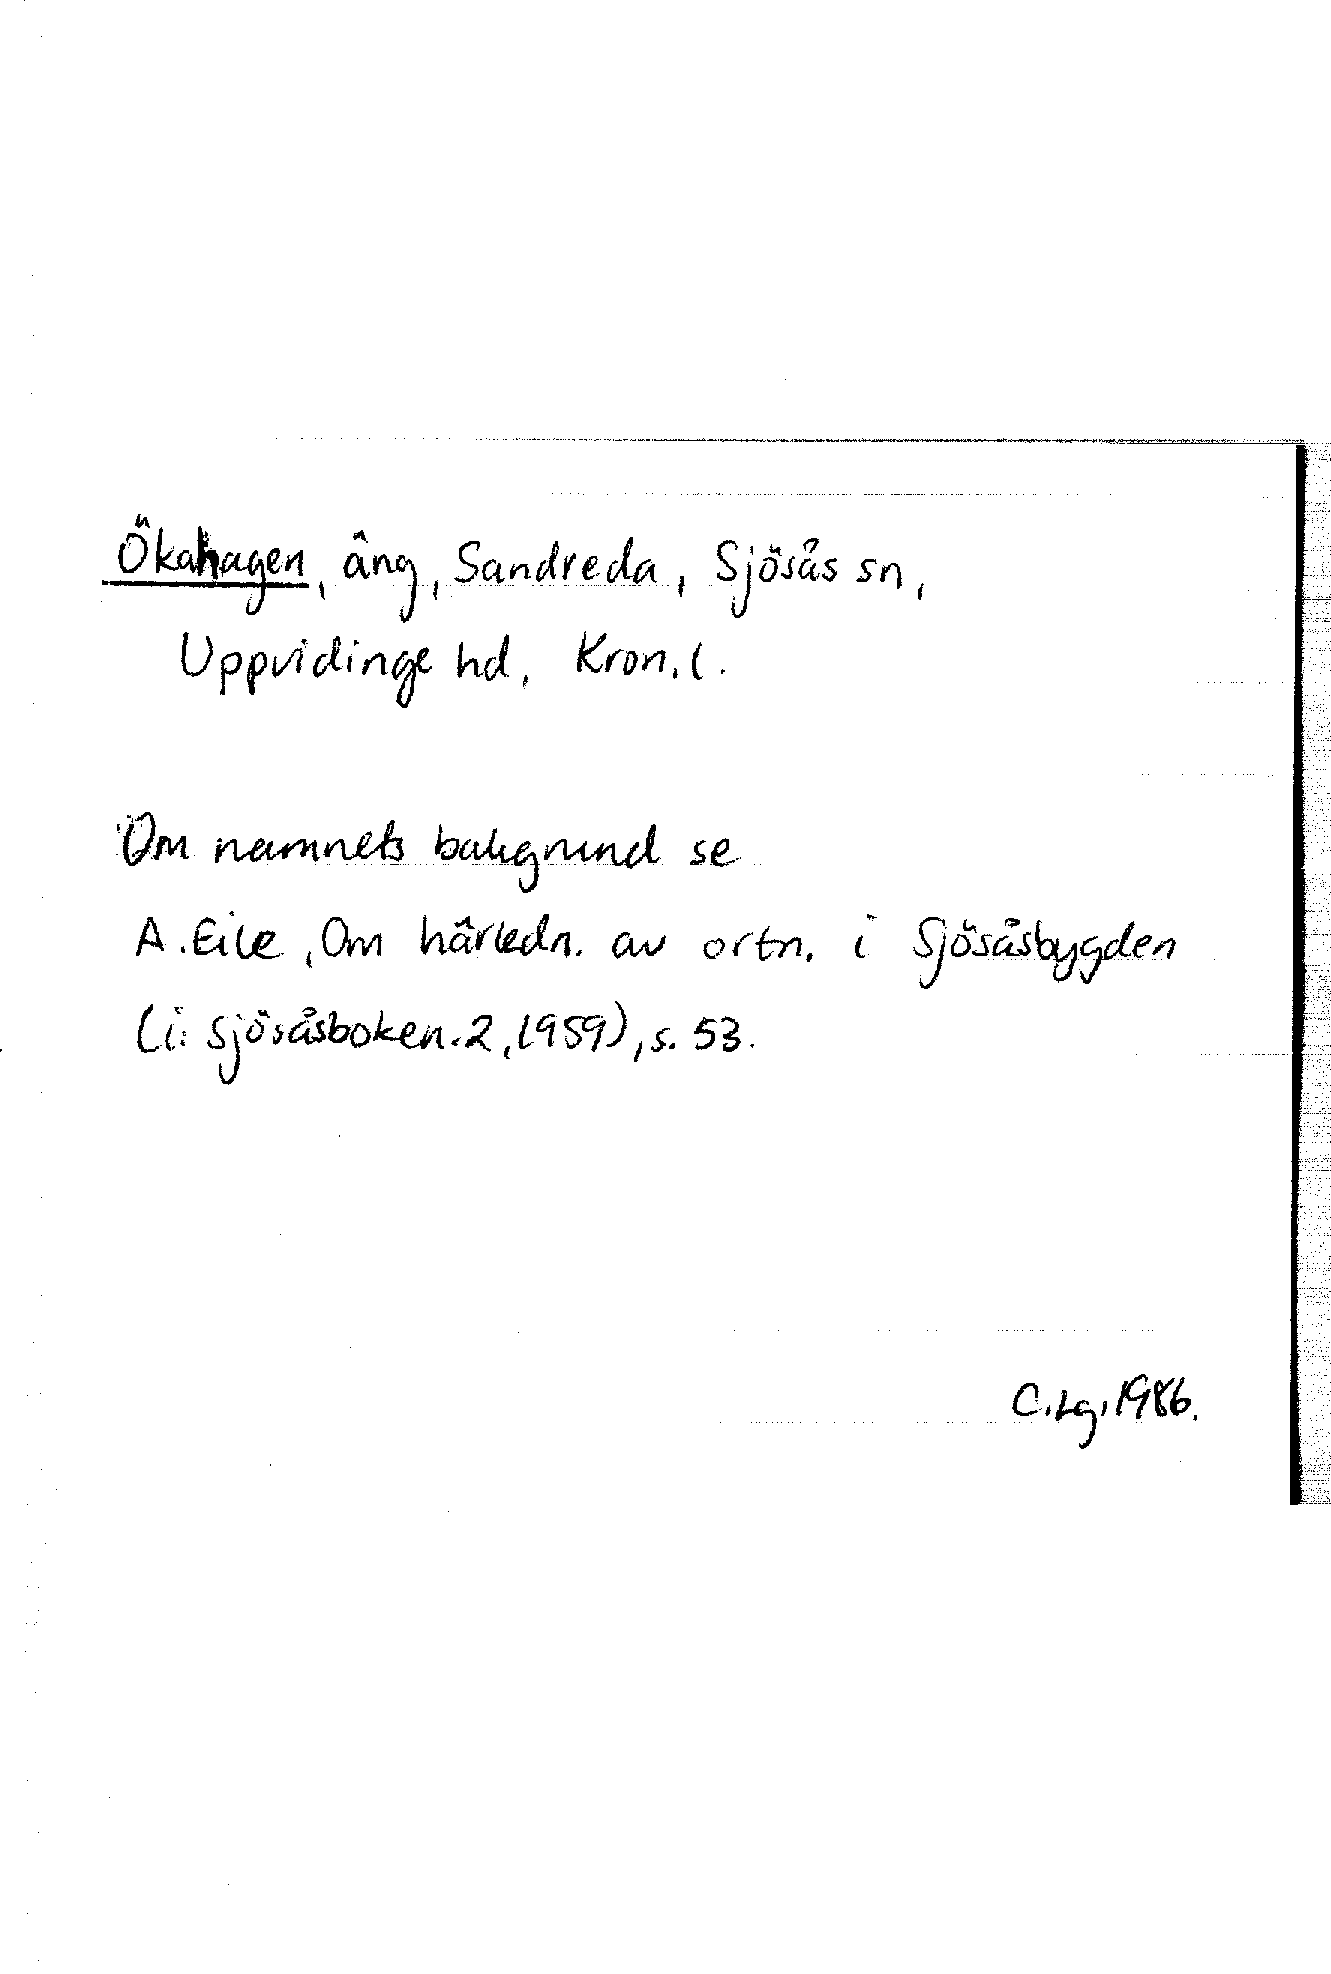 Ökahagen, äng, Sandreda, Sjösås sn,
Uppvidinge hd, Kron. l.
Om namnets bakgrund se
A. Eile, Om härledn. av ortn. i Sjösåsbygden
(i: Sjösåsboken. 2, 1959), s. 53.
C. Lg, 1986.